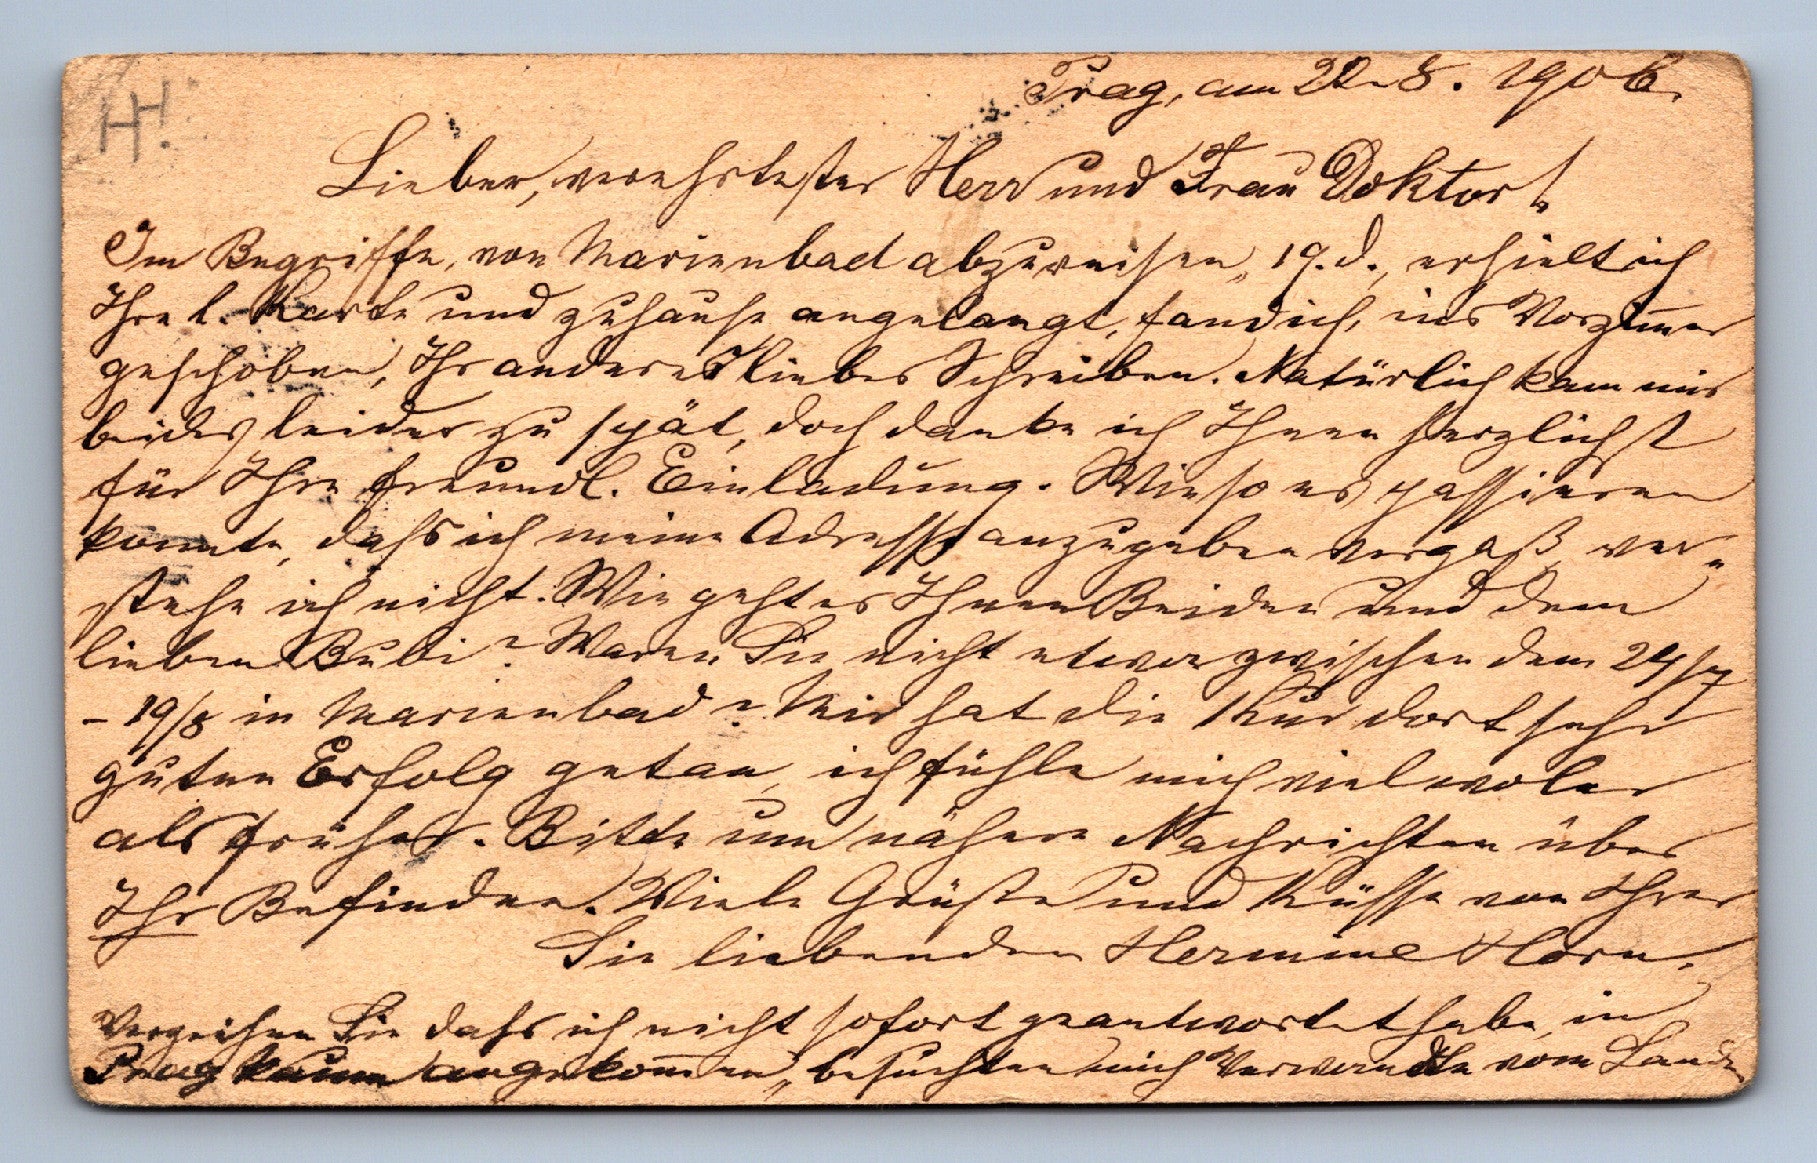 H H!
Prag, am 22.8.1906.
Lieber, verehrtester Herr und Frau Doktor!
Im Begriffe, von Marienbad abzureisen, 19. d., erhielt ich
Ihre l. Karte und zuhause angelangt, fand ich, ins Vorzimmer
geschoben, Ihr anderes liebes Schreiben. Natürlich kam mir
beides leider zu spät, doch danke ich Ihnen herzlichst
für Ihre freundl. Einladung. Wieso es passieren
konnte, daſs ich meine Adresse anzugeben vergaß, ver-
stehe ich nicht. Wie geht es Ihnen Beiden und dem
lieben Bubi? Waren Sie nicht etwa zwischen dem 24/7
– 19/8 in Marienbad? Mir hat die Kur dort sehr
guten Erfolg getan, ich fühle mich viel woler
als früher. Bitte um nähere Nachrichten über
Ihr Befinden. Viele Grüße und Küsse von Ihrer
Sie liebenden Hermine Horn.
Verzeihen Sie daſs ich nicht sofort geantwortet habe, in
Prag kaum angekom̄en, besuchten mich Verwandte vom Lande